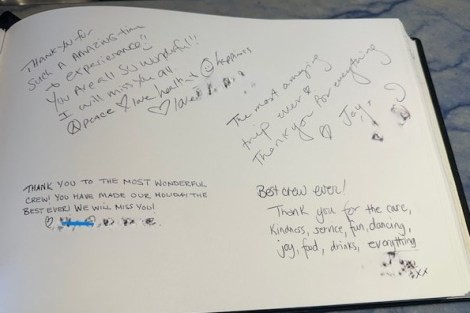 Thank you for
such a amazing time
to experience!!
You are all so wonderful!!
I will miss you all
peace ♡ love health & ☺ happiness
♡ love
The most amazing
trip ever ♡
Thank you for everything
♡ Joy,
THANK YOU TO THE MOST WONDERFUL
CREW! YOU HAVE MADE OUR HOLIDAY THE
BEST EVER! WE WILL MISS YOU!
♡
Best crew ever!
Thank you for the care,
kindness, service, fun, dancing,
joy, food, drinks, everything
xx